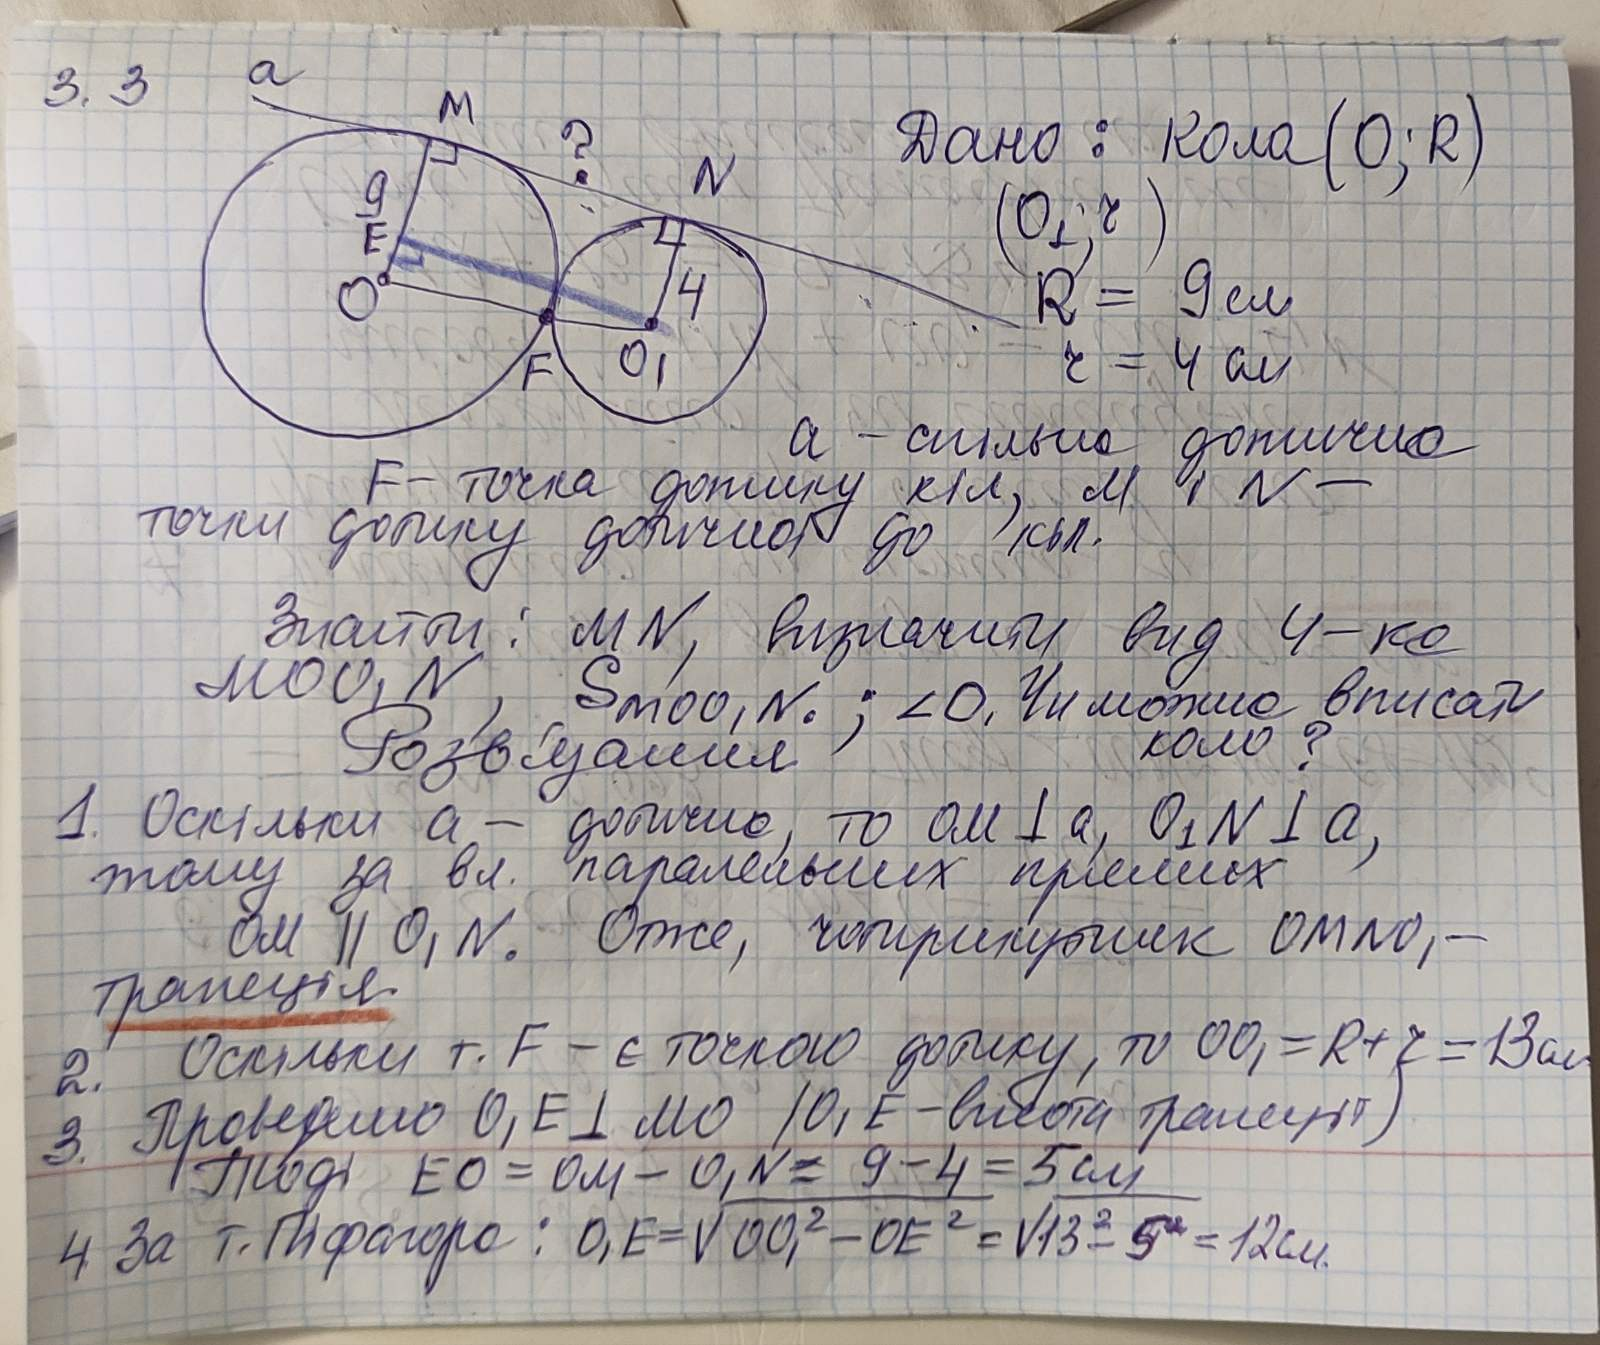 3.3
a
M
?
N
9
E
O
4
F
O₁
Дано: Кола (O; R)
(O₁; r)
R = 9 см
r = 4 см
a - спільна дотична
F - точка дотику кіл, M і N -
точки дотику дотичної до кіл.
Знайти: MN, визначити вид 4-ка
MOO₁N, Sмоо₁N. ; <O. Чи можна вписати
коло?
Розв'язання
1. Оскільки a - дотична, то OM ⊥ a, O₁N ⊥ a,
тому за вл. паралельних прямих
OM || O₁N. Отже, чотирикутник OMNO₁ -
трапеція.
2. Оскільки т. F - є точкою дотику, то OO₁ = R + r = 13 см
3. Проведемо O₁E ⊥ MO (O₁E - висота трапеції)
Тоді EO = OM - O₁N = 9 - 4 = 5 см
4 За т. Піфагора: O₁E = √OO₁² - OE² = √13² - 5² = 12 см.